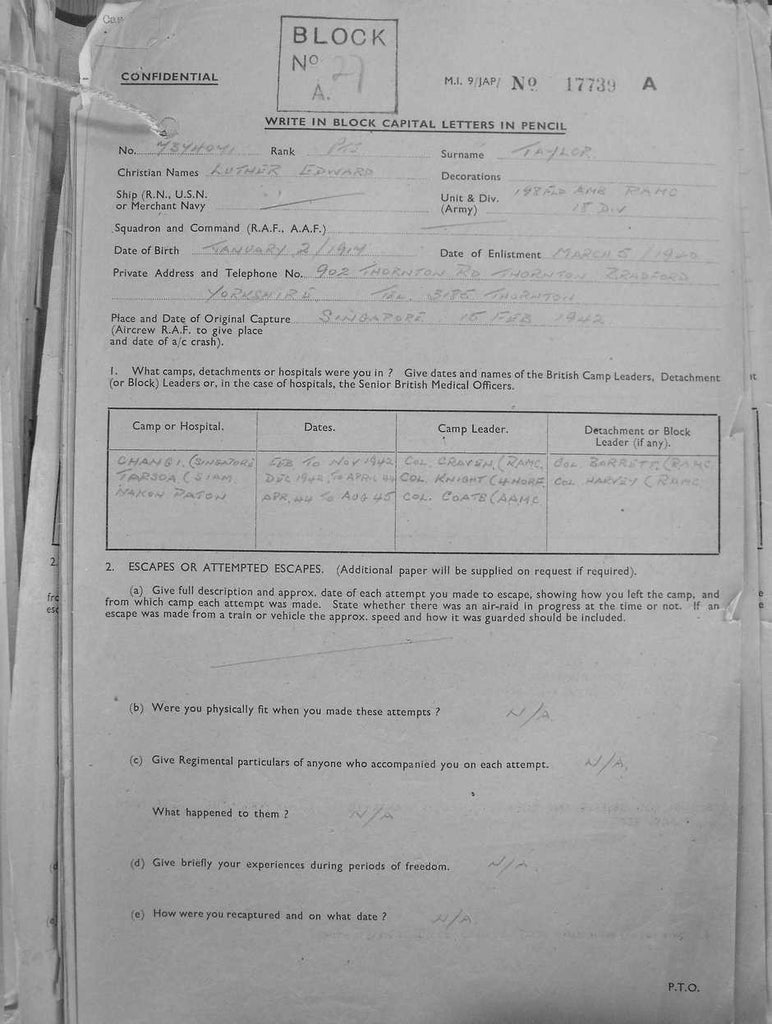 CONFIDENTIAL
BLOCK
Nº 27
A.
M.I. 9/JAP/ Nº 17739 A
WRITE IN BLOCK CAPITAL LETTERS IN PENCIL
No. 7374071 Rank PTE Surname TAYLOR
Christian Names LUTHER EDWARD Decorations
Ship (R.N., U.S.N. or Merchant Navy Unit & Div. (Army) 198 FLD AMB RAMC
18 DIV
Squadron and Command (R.A.F., A.A.F.)
Date of Birth JANUARY 2/1914 Date of Enlistment MARCH 5/1940
Private Address and Telephone No. 902 THORNTON RD THORNTON BRADFORD
YORKSHIRE TEL. 3185 THORNTON
Place and Date of Original Capture SINGAPORE. 15 FEB 1942
(Aircrew R.A.F. to give place
and date of a/c crash).
1. What camps, detachments or hospitals were you in ? Give dates and names of the British Camp Leaders, Detachment
(or Block) Leaders or, in the case of hospitals, the Senior British Medical Officers.
Camp or Hospital. Dates. Camp Leader. Detachment or Block
Leader (if any).
CHANGI, (SINGAPORE FEB TO NOV 1942 COL. CRAVEN, (RAMC, COL. BARRETT, (RAMC
TARSOA (SIAM DEC 1942, TO APR. 44 COL. KNIGHT (4 NORF COL. HARVEY (RAMC
NAKON PATON APR. 44 TO AUG 45 COL. COATS (AAMC
2. ESCAPES OR ATTEMPTED ESCAPES. (Additional paper will be supplied on request if required).
(a) Give full description and approx. date of each attempt you made to escape, showing how you left the camp, and
from which camp each attempt was made. State whether there was an air-raid in progress at the time or not. If an
escape was made from a train or vehicle the approx. speed and how it was guarded should be included.
(b) Were you physically fit when you made these attempts ? N/A
(c) Give Regimental particulars of anyone who accompanied you on each attempt. N/A.
What happened to them ? N/A
(d) Give briefly your experiences during periods of freedom. N/A.
(e) How were you recaptured and on what date ? N/A
P.T.O.